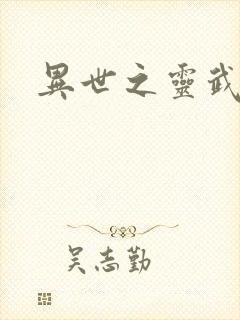 異世之靈武
吴志勤